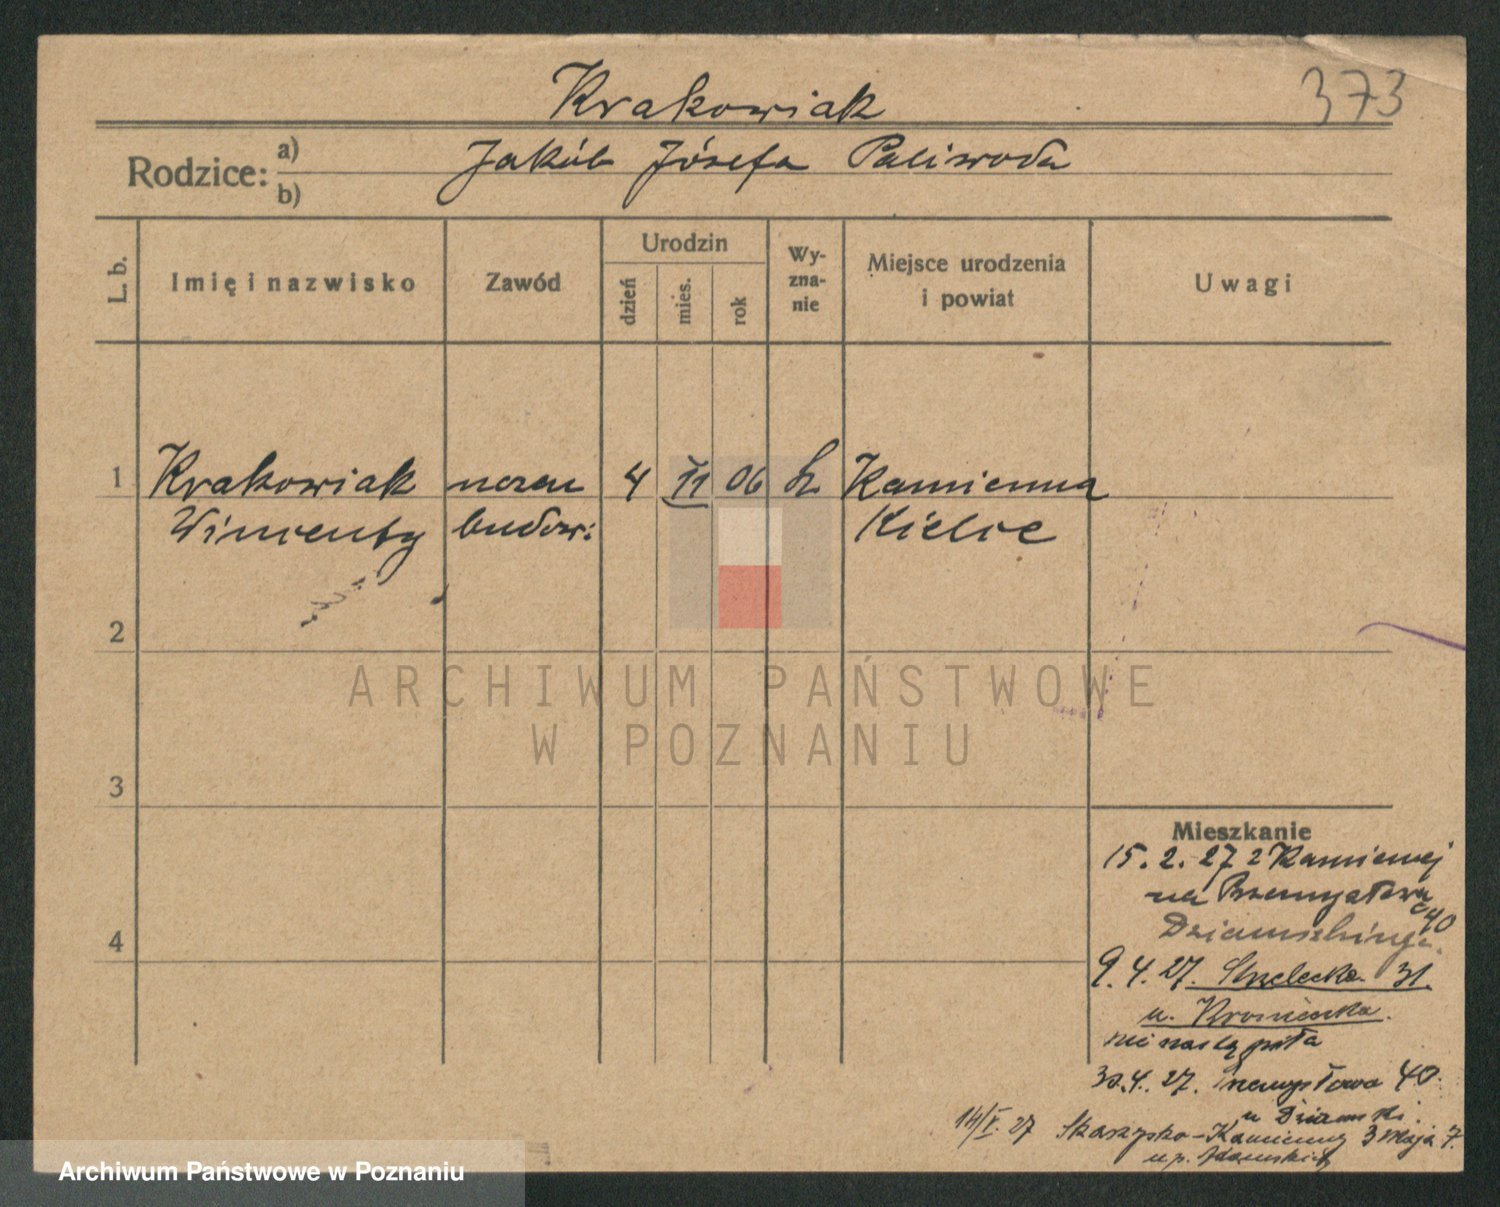 373
Krakowiak
Rodzice: a) Jakób Józefa Paliwoda
b)
L. b.
Imię i nazwisko
Zawód
Urodzin
dzień
mies.
rok
Wy-
zna-
nie
Miejsce urodzenia
i powiat
Uwagi
1 Krakowiak 4 11 06 Kamienna
Wincenty budow: Kielce
2
ARCHIWUM PAŃSTWOWE
W POZNANIU
3
Mieszkanie
15. 2. 27 z Kamiennej
na Przemysłową 40
4
9. 4. 27. Strzelecka 31.
u.
nie nastąpiła
30. 4. 27. Przemysłowa 40.
u Dziamski.
14/V. 27 Skarzysko-Kamienna 3 Maja 7.
u p.
Archiwum Państwowe w Poznaniu